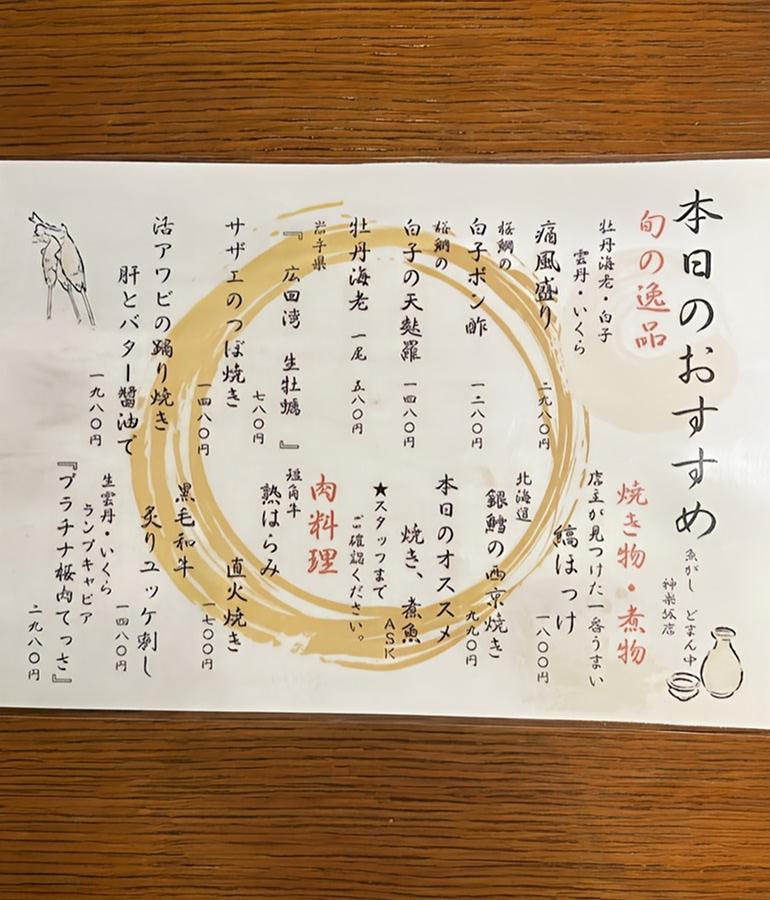 本日のおすすめ
魚がし どまん中
神楽坂店
旬の逸品
牡丹海老・白子
雲丹・いくら
痛風盛り
二九八〇円
桜鯛の
白子ポン酢
一二八〇円
桜鯛の
白子の天麩羅
一四八〇円
牡丹海老 一尾 五八〇円
岩手県
『広田湾 生牡蠣』
七八〇円
サザエのつぼ焼き
一四八〇円
活アワビの踊り焼き
肝とバター醤油で
一九八〇円
焼き物・煮物
店主が見つけた一番うまい
縞ほっけ
一八〇〇円
北海道
銀鱈の西京焼き
九九〇円
本日のオススメ
焼き、煮魚
ASK
★スタッフまで
ご確認ください。
肉料理
短角牛
熟はらみ
直火焼き
一七〇〇円
黒毛和牛
炙りユッケ刺し
一四八〇円
生雲丹・いくら
ランプキャビア
『プラチナ桜肉てっさ』
二九八〇円